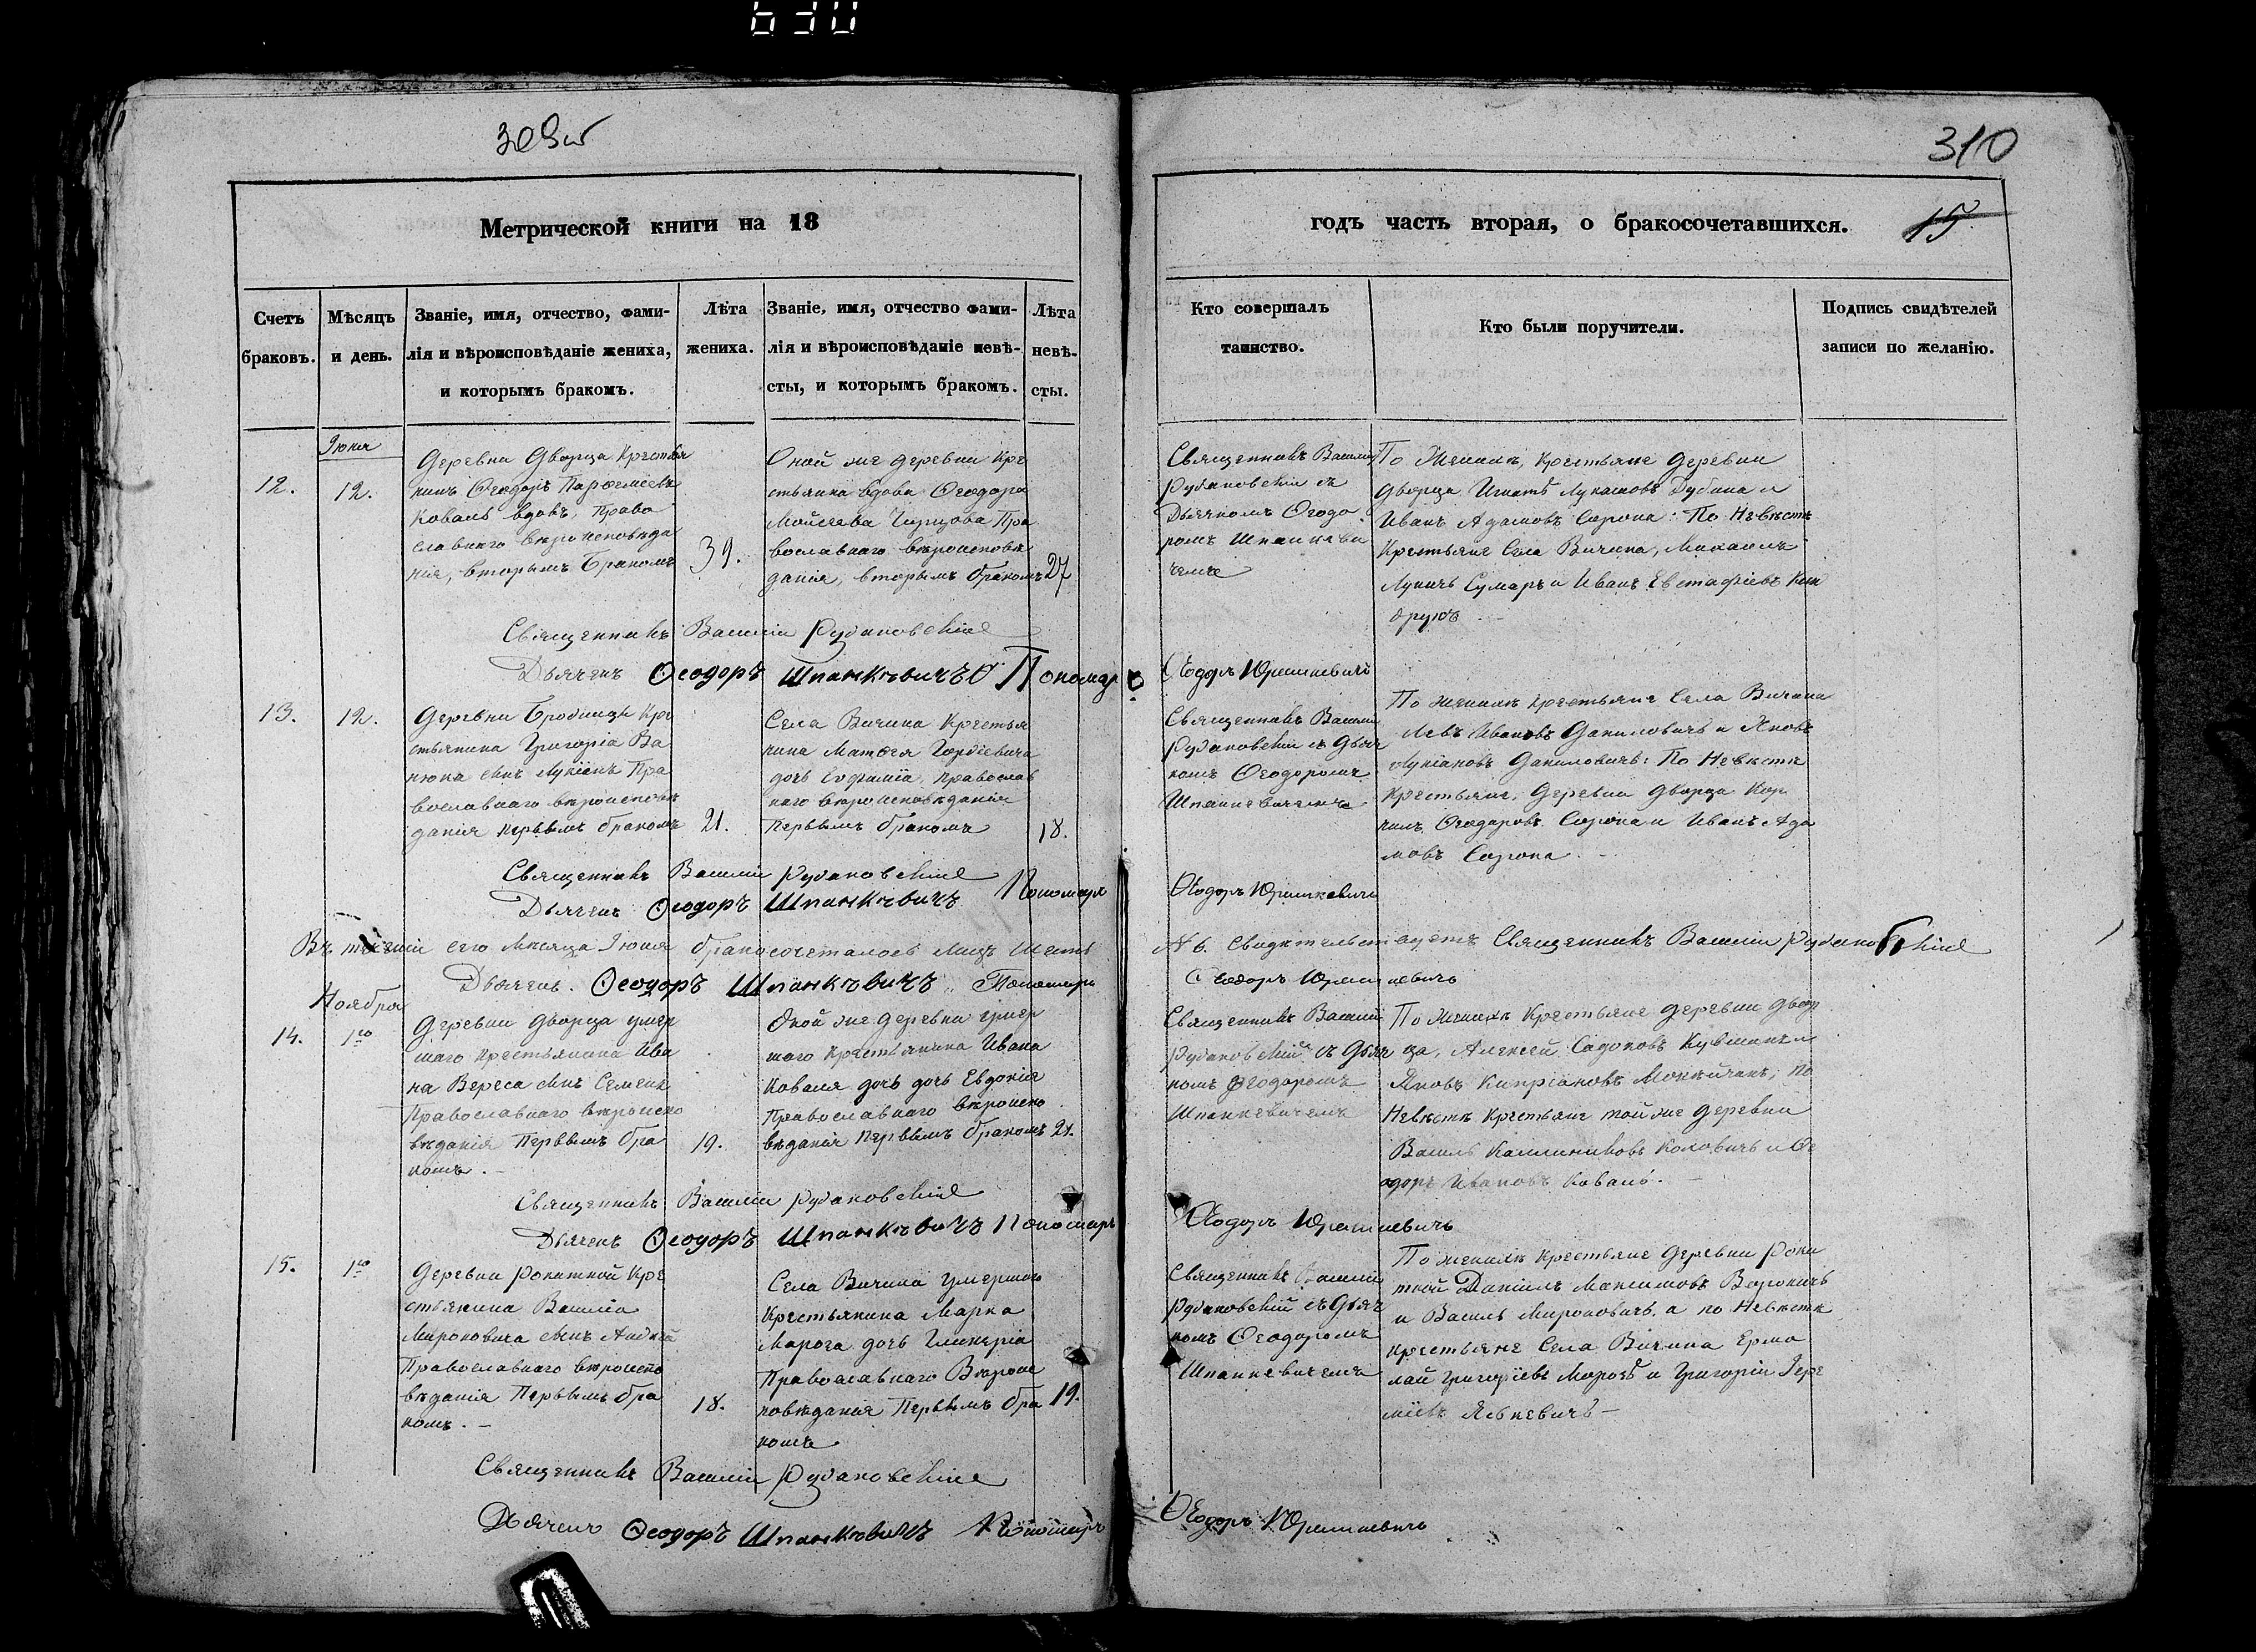 630
309об
310
Метрической книги на 18
годъ часть вторая, о бракосочетавшихся.
15
Счетъ браковъ.
Мѣсяцъ и день.
Званіе, имя, отчество, фами-
лія и вѣроисповѣданіе жениха,
и которымъ бракомъ.
Лѣта
жениха.
Званіе, имя, отчество фами-
лія и вѣроисповѣданіе невѣ-
сты, и которымъ бракомъ.
Лѣта
невѣ-
сты.
Кто совершалъ
таинство.
Кто были поручители.
Подпись свидѣтелей
записи по желанію.
Іюня
12.
12.
Деревни Дворца Крестья
нинъ Ѳеодоръ
Коваль вдовъ, право
славнаго вѣроисповѣда
нія, вторымъ бракомъ
39.
Оной же деревни кре
стьянка вдова Ѳеодора
Мойсеева Пра
вославнаго вѣроисповѣ
данія, вторымъ бракомъ
27
Священникъ Василій
Рудаковскій съ
Дьячкомъ Ѳеодо
ромъ Шпанкеви
чемъ
По Женихѣ, крестьяне деревни
Дворца Игнатъ Лукашовъ Дубина и
Иванъ Адамовъ Сорока: По Невѣстѣ
Крестьяне Села Вичина, Михаилъ
Лукичъ Сумаръ и Иванъ Евстафіевъ Кон
друкъ
Священникъ Василій Рудаковскій
Дьячекъ Ѳеодоръ Шпанкѣвичъ Пономарь
Ѳеодоръ Юрашкевичъ
13.
12.
Деревни Бродницы Кре
стьянина Григорія Ва
нюка сынъ Лукіянъ Пра
вославнаго вѣроисповѣ
данія первымъ бракомъ
21.
Села Вичина Крестья
нина Матѳея Гордіевича
дочь Евфимія, православ
наго вѣроисповѣданія
первымъ бракомъ
18.
Священникъ Василій
Рудаковскій съ Дьяч
комъ Ѳеодоромъ
Шпанкевичемъ
По женихѣ крестьяне Села Вичина
Левъ Ивановъ Даниловичъ и Яковъ
Лукіановъ Даниловичъ: По Невѣстѣ
Крестьяне, Деревни Дворца Кор
нилъ Ѳеодоровъ Сорока и Иванъ Ада
мовъ Сорока.
Священникъ Василій Рудаковскій
Дьячекъ Ѳеодоръ Шпанкѣвичъ Пономарь
Ѳеодоръ Юрашкевичъ
Въ теченіи сего Мѣсяца Іюня бракосочеталось лицъ шесть
№ 6. Свидѣтельствуетъ Священникъ Василій Рудаковскій
Дьячекъ. Ѳеодоръ Шпанкѣвичъ. Пономарь
Ѳеодоръ Юрашкевичъ
Ноября
14.
1го
Деревни Дворца умер
шаго крестьянина Ива
на Вереса сынъ Семенъ
Православнаго вѣроиспо
вѣданія Первымъ бра
комъ.
19.
Оной же деревни умер
шаго крестьянина Ивана
Коваля дочь дочь Евдокія
Православнаго вѣроиспо
вѣданія первымъ бракомъ
21.
Священникъ Василій
Рудаковскій съ Дьяч
комъ Ѳеодоромъ
Шпанкевичемъ
По женихѣ Крестьяне деревни Двор
ца, Алексей и
Яковъ Кипріановъ по
Невѣстѣ крестьяне той же деревни
Василь Калиниковъ Коловичъ и Ѳе
одоръ Ивановъ Коваль.
Священникъ Василій Рудаковскій
Дьячекъ Ѳеодоръ Шпанкѣвичъ Пономарь
Ѳеодоръ Юрашкевичъ
15.
1го
Деревни Рокитной кре
стьянина Василія
Мироновича сынъ Андрей
Православнаго вѣроиспо
вѣданія Первымъ бра
комъ.
18.
Села Вичина умершаго
Крестьянина Марка
Мороза дочь Гликерія
Православнаго Вѣроис
повѣданія Первымъ бра
комъ
19.
Священникъ Василій
Рудаковскій съ Дьяч
комъ Ѳеодоромъ
Шпанкевичемъ
По женихѣ крестьяне деревни Роки
тной Даніилъ Максимовъ
и Василь Мироновичъ. а по Невѣстѣ
крестьяне Села Вичина Ермо
лай Григоріевъ Морозъ и Григорій Іере
міевъ
Священникъ Василій Рудаковскій
Дьячекъ Ѳеодоръ Шпанкѣвичъ Пономарь
Ѳеодоръ Юрашкевичъ